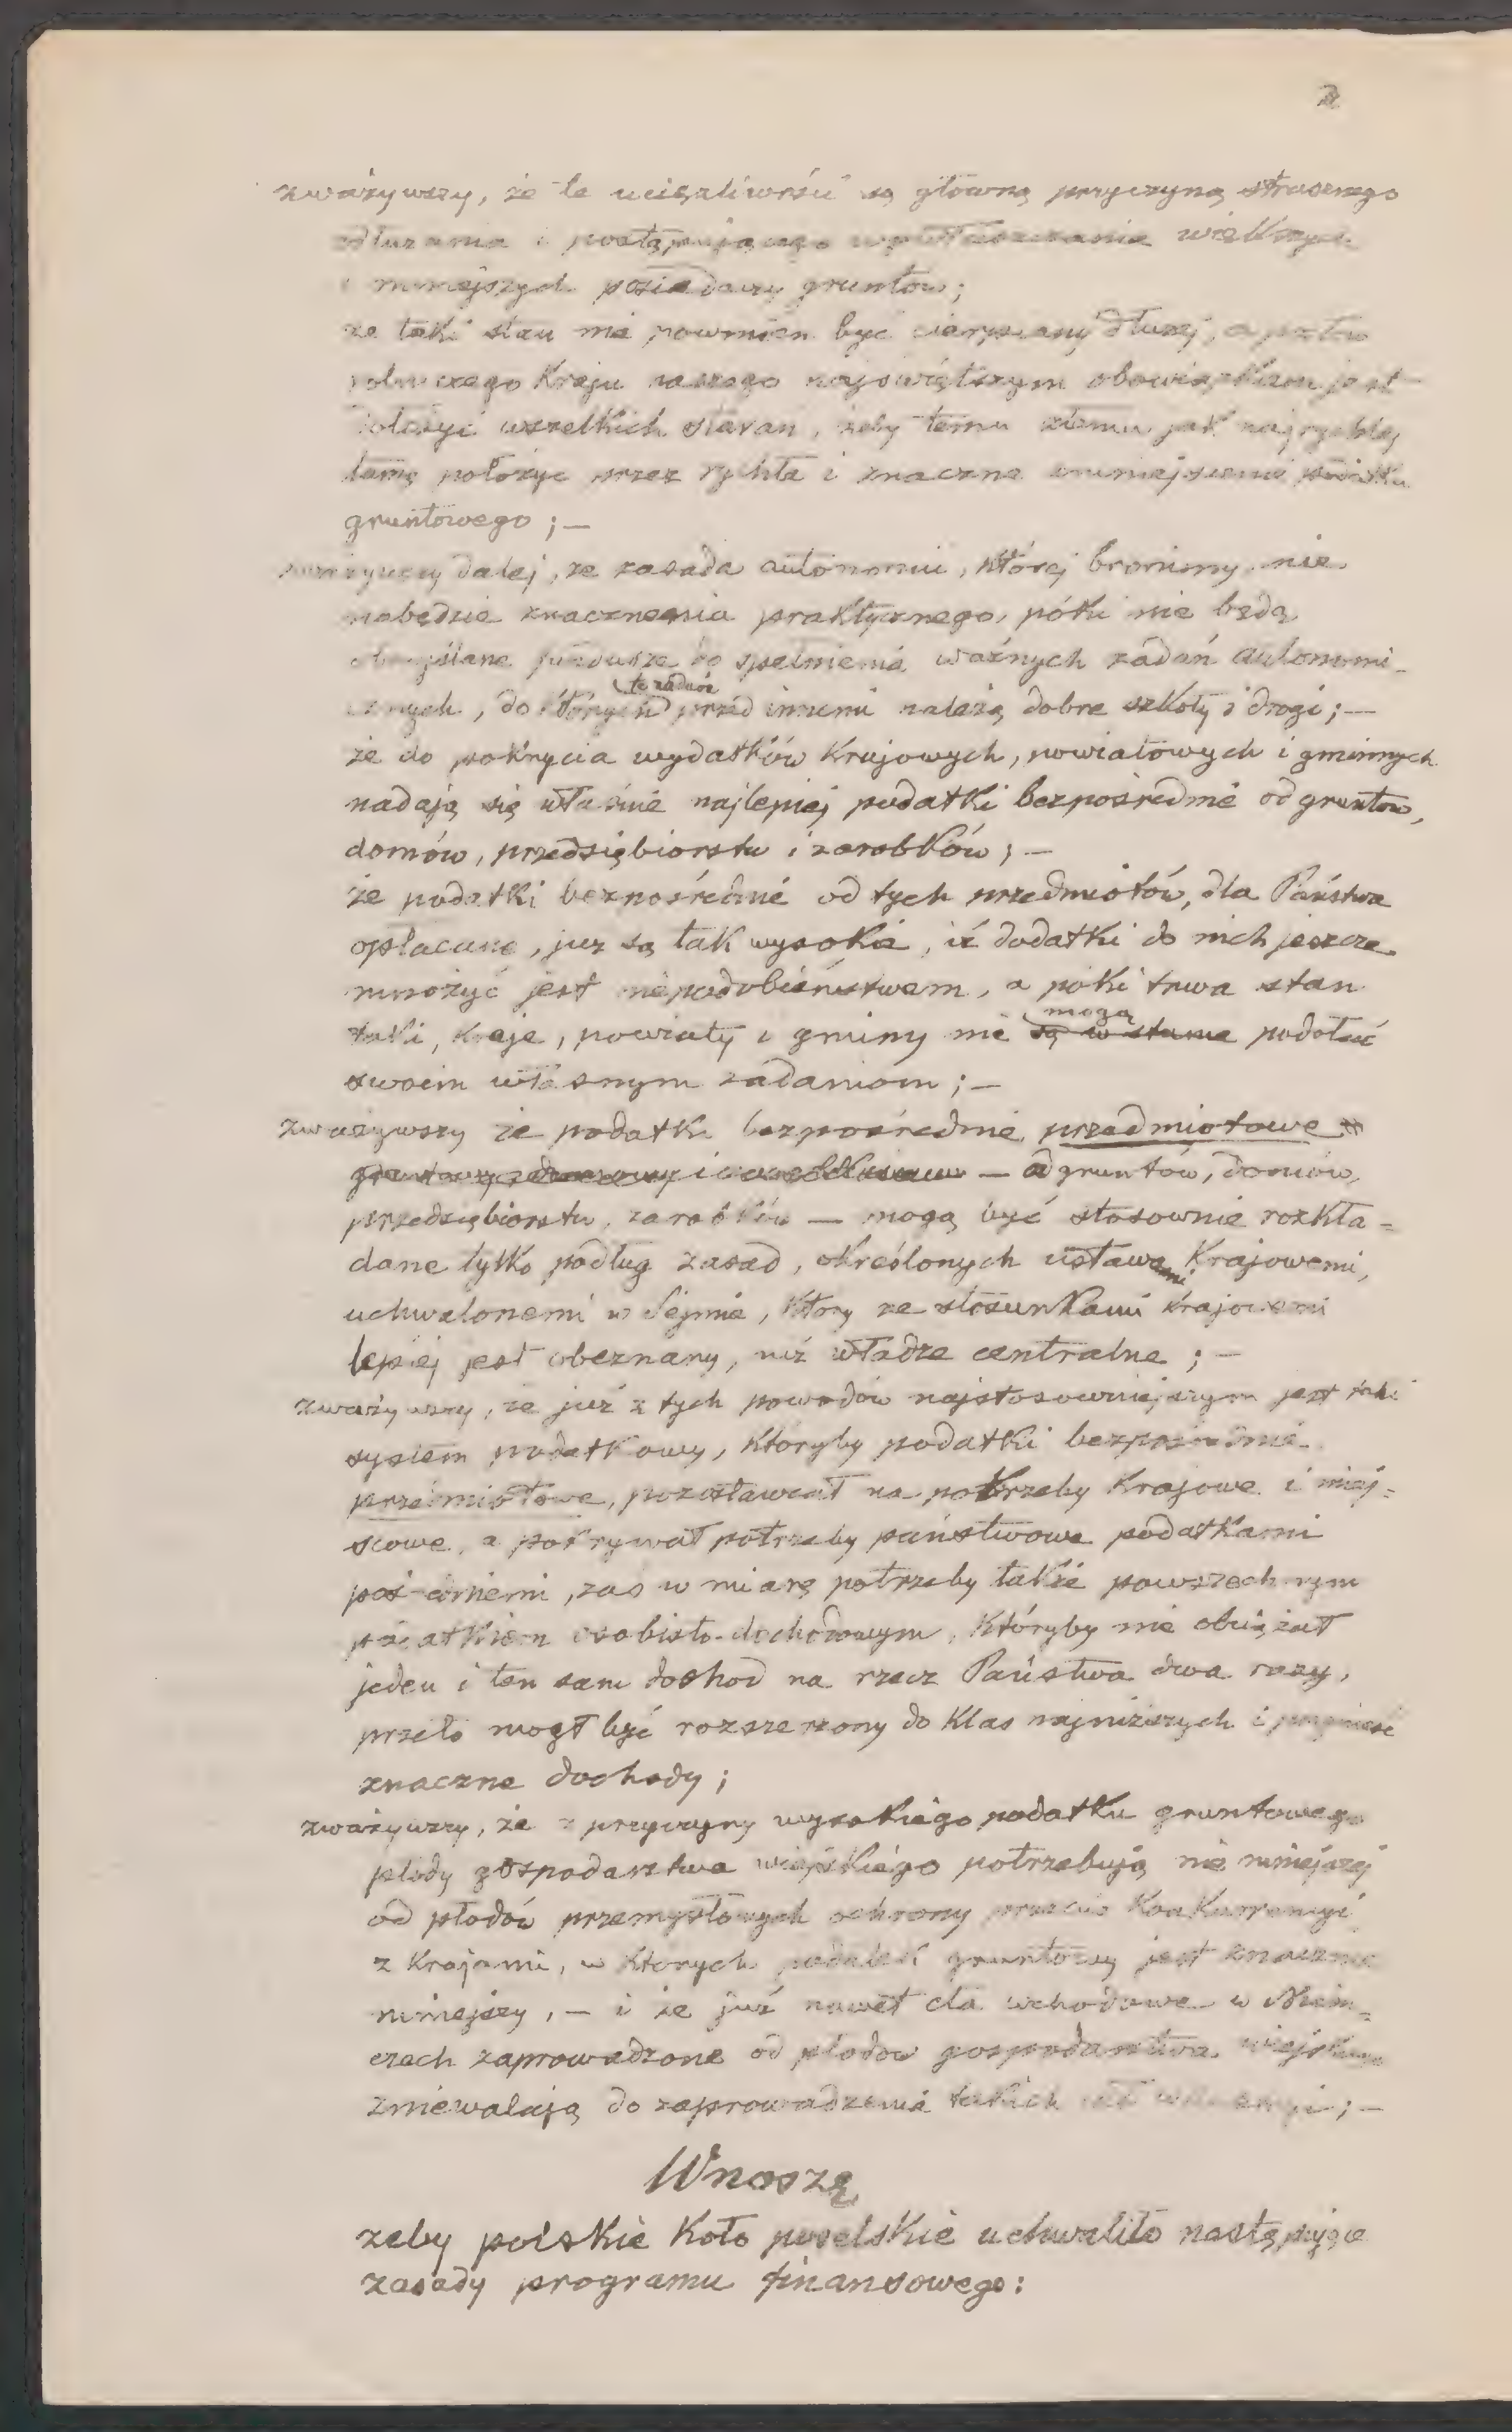 2
zważywszy, że te uciążliwości są główną przyczyną strasznego
odłużania i postępującego wywłaszczania większych
i mniejszych posiadaczy gruntów;
że taki stan nie powinien być cierpiany dłużej, a posłów
rolniczego Kraju naszego najświętszym obowiązkiem jest
dołożyć wszelkich starań, żeby temu złemu jak najrychlej
tamę położyć przez rychłe i znaczne zmniejszenie podatku
gruntowego; —
zważywszy dalej, że zasada autonomii, której bronimy, nie
nabędzie znaczenia praktycznego, póki nie będą
obmyślane fundusze do spełnienia ważnych zadań autonomi-
cznych, do których przed innemi należą dobre szkoły i drogi; —
że do pokrycia wydatków Krajowych, powiatowych i gminnych
nadają się właśnie najlepiej podatki bezpośrednie od gruntów,
domów, przedsiębiorstw i zarobków; —
że podatki bezpośrednie od tych przedmiotów, dla Państwa
opłacane, już są tak wysokie, iż dodatki do nich jeszcze
mnożyć jest niepodobieństwem, a póki trwa stan
taki, kraje, powiaty i gminy nie są w stanie mogą podołać
swoim własnym zadaniom; —
zważywszy że podatki bezpośrednie przedmiotowe
— od gruntów, domów,
przedsiębiorstw, zarobków — mogą być stosownie rozkła-
dane tylko podług zasad, określonych ustawami Krajowemi,
uchwalonemi w Sejmie, który ze stosunkami krajowemi
lepiej jest obeznany, niż władze centralne; —
zważywszy, że już z tych powodów najstosowniejszym jest taki
system podatkowy, któryby podatki bezpośrednie
przedmiotowe, pozostawiał na potrzeby Krajowe i miej-
scowe, a pokrywał potrzeby państwowe podatkami
pośredniemi, zaś w miarę potrzeby także powszechnym
podatkiem osobisto-dochodowym, któryby nie obciążał
jeden i ten sam dochod na rzecz Państwa dwa razy,
przeto mogł być rozszerzony do klas najniższych i przynieść
znaczne dochody;
zważywszy, że z przyczyny wysokiego podatku gruntowego
płody gospodarstwa wiejskiego potrzebują nie mniejszej
od płodów przemysłowych ochrony przeciw Konkurencyi
z Krajami, w których podatek gruntowy jest znacznie
mniejszy, — i że już nawet cła wchodowe w Niem-
czech zaprowadzone od płodów gospodarstwa wiejskiego
zniewalają do zaprowadzenia takich ceł
Wnoszę
żeby polskie Koło poselskie uchwaliło następujące
zasady programu finansowego: